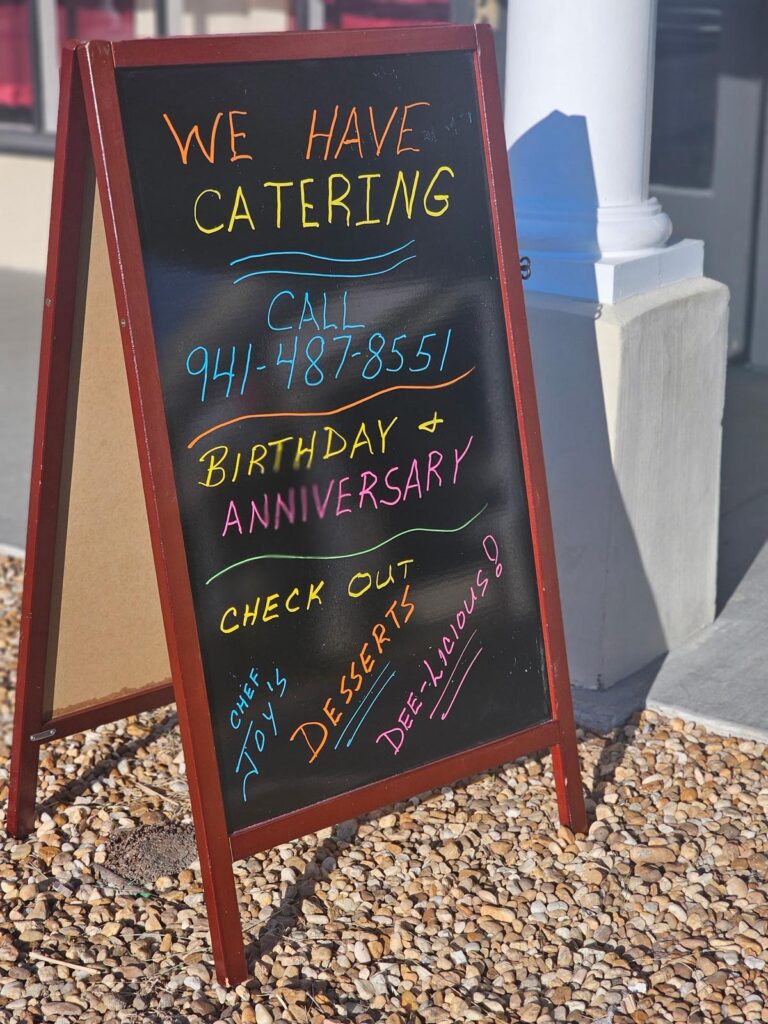 WE HAVE
CATERING
CALL
941-487-8551
BIRTHDAY &
ANNIVERSARY
CHECK OUT
CHEF
JOY'S
DESSERTS
DEE-LICIOUS!